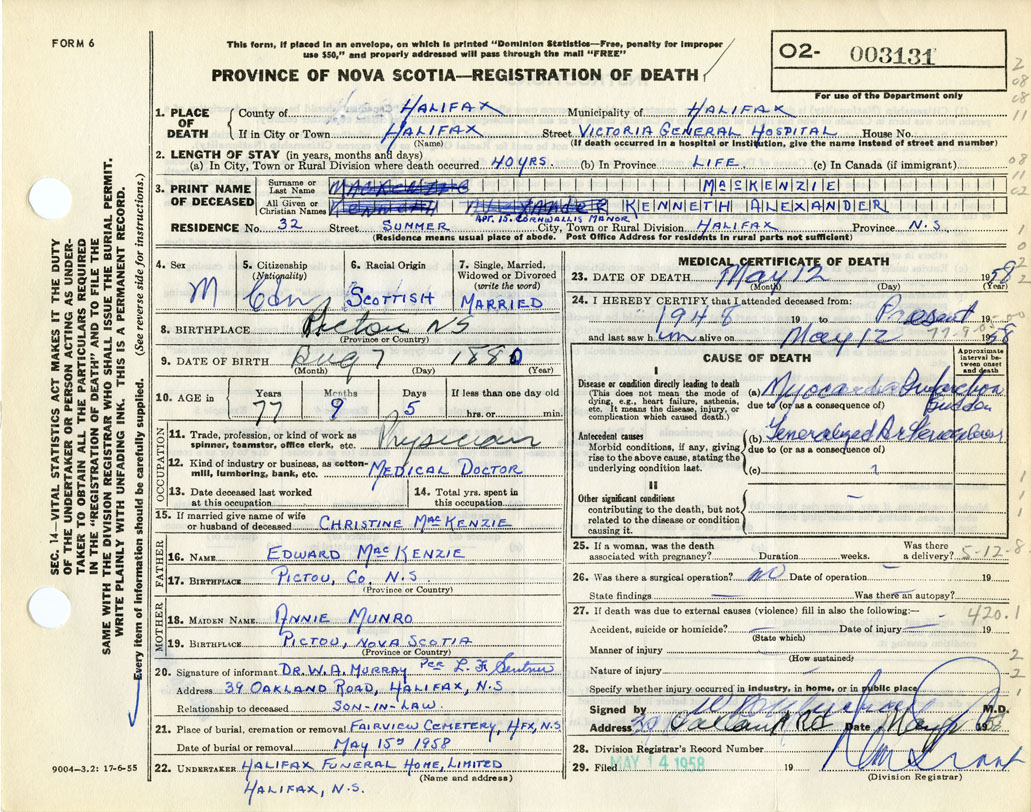 FORM 6
This form, if placed in an envelope, on which is printed "Dominion Statistics—Free, penalty for improper
use $50," and properly addressed will pass through the mail "FREE"
PROVINCE OF NOVA SCOTIA—REGISTRATION OF DEATH
O2- 003131
For use of the Department only
1. PLACE OF DEATH
County of HALIFAX Municipality of HALIFAX
If in City or Town HALIFAX Street VICTORIA GENERAL HOSPITAL House No.
(Name) (If death occurred in a hospital or institution, give the name instead of street and number)
2. LENGTH OF STAY (in years, months and days)
(a) In City, Town or Rural Division where death occurred 40 YRS. (b) In Province LIFE. (c) In Canada (if immigrant)
3. PRINT NAME OF DECEASED
Surname or Last Name MACKENZIE MacKENZIE
All Given or Christian Names KENNETH ALEXANDER KENNETH ALEXANDER
APT. 15. CORNWALLIS MANOR
RESIDENCE No. 32 Street SUMMER City, Town or Rural Division HALIFAX Province N.S.
(Residence means usual place of abode. Post Office Address for residents in rural parts not sufficient)
4. Sex M
5. Citizenship (Nationality) Cdn
6. Racial Origin SCOTTISH
7. Single, Married, Widowed or Divorced (write the word) MARRIED
8. BIRTHPLACE Pictou NS
(Province or Country)
9. DATE OF BIRTH Aug 7 1880
(Month) (Day) (Year)
10. AGE in Years 77 Months 9 Days 5 If less than one day old hrs. or min.
OCCUPATION
11. Trade, profession, or kind of work as spinner, teamster, office clerk, etc. Physician
12. Kind of industry or business, as cotton-mill, lumbering, bank, etc. MEDICAL DOCTOR
13. Date deceased last worked at this occupation
14. Total yrs. spent in this occupation
15. If married give name of wife or husband of deceased CHRISTINE MacKENZIE
FATHER
16. NAME EDWARD MacKENZIE
17. BIRTHPLACE PICTOU, CO. N.S.
(Province or Country)
MOTHER
18. MAIDEN NAME ANNIE MUNRO
19. BIRTHPLACE PICTOU, NOVA SCOTIA
(Province or Country)
20. Signature of informant DR. W. A. MURRAY Per L. F.
Address 39 OAKLAND ROAD, HALIFAX, N.S
Relationship to deceased SON-IN-LAW.
21. Place of burial, cremation or removal FAIRVIEW CEMETERY, HFX, N.S
Date of burial or removal MAY 15th 1958
22. UNDERTAKER HALIFAX FUNERAL HOME, LIMITED
(Name and address)
HALIFAX, N.S.
MEDICAL CERTIFICATE OF DEATH
23. DATE OF DEATH May 12 1958
(Month) (Day) (Year)
24. I HEREBY CERTIFY that I attended deceased from:
1948 19 to Present 19
77-9-05-00
and last saw him alive on May 12 1958
CAUSE OF DEATH
Approximate interval between onset and death
I
Disease or condition directly leading to death
(This does not mean the mode of dying, e.g., heart failure, asthenia, etc. It means the disease, injury, or complication which caused death.)
(a) Myocardial Infarction
due to (or as a consequence of) Sudden
Antecedent causes
Morbid conditions, if any, giving rise to the above cause, stating the underlying condition last.
(b) Generalized Arteriosclerosis
due to (or as a consequence of)
(c)
II
Other significant conditions
contributing to the death, but not related to the disease or condition causing it.
25. If a woman, was the death associated with pregnancy? Duration weeks. Was there a delivery?
5-12-8
26. Was there a surgical operation? no Date of operation 19
State findings Was there an autopsy?
27. If death was due to external causes (violence) fill in also the following:—
420.1
Accident, suicide or homicide? Date of injury 19
(State which)
Manner of injury
(How sustained)
Nature of injury
Specify whether injury occurred in industry, in home, or in public place
Signed by M.D.
Address 39 Oakland Rd Date May 1958
28. Division Registrar's Record Number
29. Filed MAY 14 1958 19
(Division Registrar)
SEC. 14—VITAL STATISTICS ACT MAKES IT THE DUTY
OF THE UNDERTAKER OR PERSON ACTING AS UNDER-
TAKER TO OBTAIN ALL THE PARTICULARS REQUIRED
IN THE "REGISTRATION OF DEATH" AND TO FILE THE
SAME WITH THE DIVISION REGISTRAR WHO SHALL ISSUE THE BURIAL PERMIT.
WRITE PLAINLY WITH UNFADING INK. THIS IS A PERMANENT RECORD.
Every item of information should be carefully supplied. (See reverse side for instructions.)
9004-3.2: 17-6-55